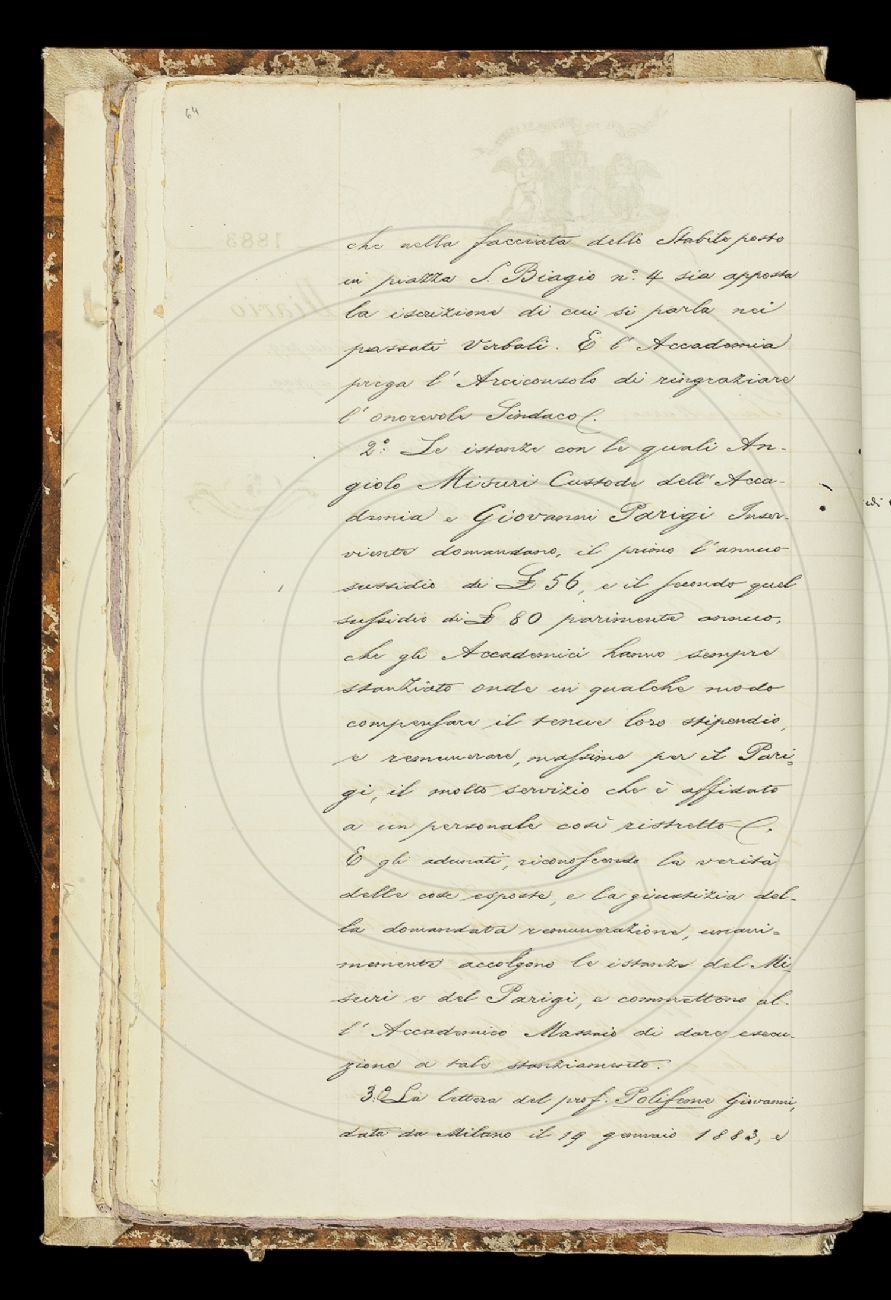 64
che nella facciata dello Stabile posto
in piazza S. Biagio n.° 4 sia apposta
la iscrizione di cui si parla nei
passati Verbali. E l'Accademia
prega l'Arciconsolo di ringraziare
l'onorevole Sindaco.
2.° Le istanze con le quali An-
giolo Misuri Custode dell'Acca-
demia e Giovanni Parigi Inser-
viente domandano, il primo l'annuo
sussidio di £ 56, e il secondo quel
sussidio di £ 80 parimente annuo,
che gli Accademici hanno sempre
stanziato onde in qualche modo
compensare il tenue loro stipendio,
e remunerare, massime per il Pari=
gi, il molto servizio che è affidato
a un personale così ristretto.
E gli adunati, riconoscendo la verità
delle cose esposte, e la giustizia del-
la domandata remunerazione, unani=
memente accolgono le istanze del Mi-
suri e del Parigi, e commettono al-
l'Accademico Massaio di dare esecu-
zione a tale stanziamento.
3.° La lettera del prof. Polifeme Giovanni,
data da Milano il 19 gennaio 1883, e